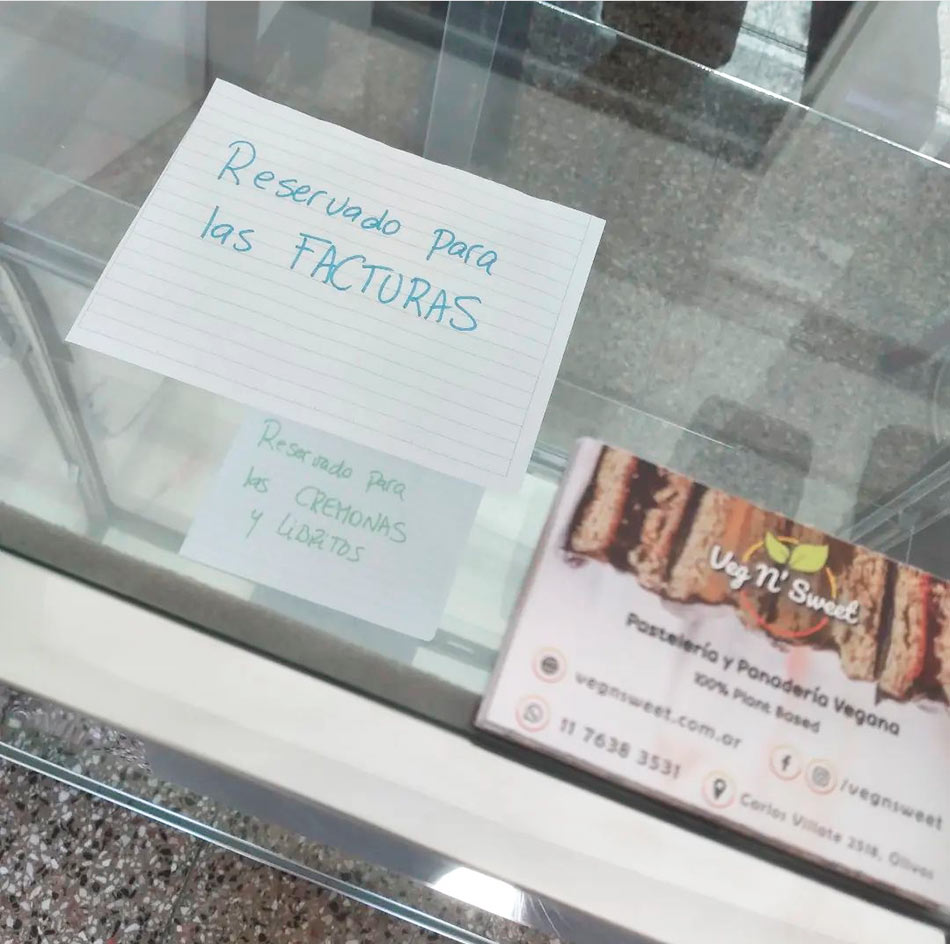 Reservado para
las FACTURAS
Reservado para
las CREMONAS
y LIBRITOS
Veg N' Sweet
Pastelería y Panadería Vegana
100% Plant Based
vegnsweet.com.ar
11 7638 3531
/vegnsweet
Carlos Villate 2518, Olivos